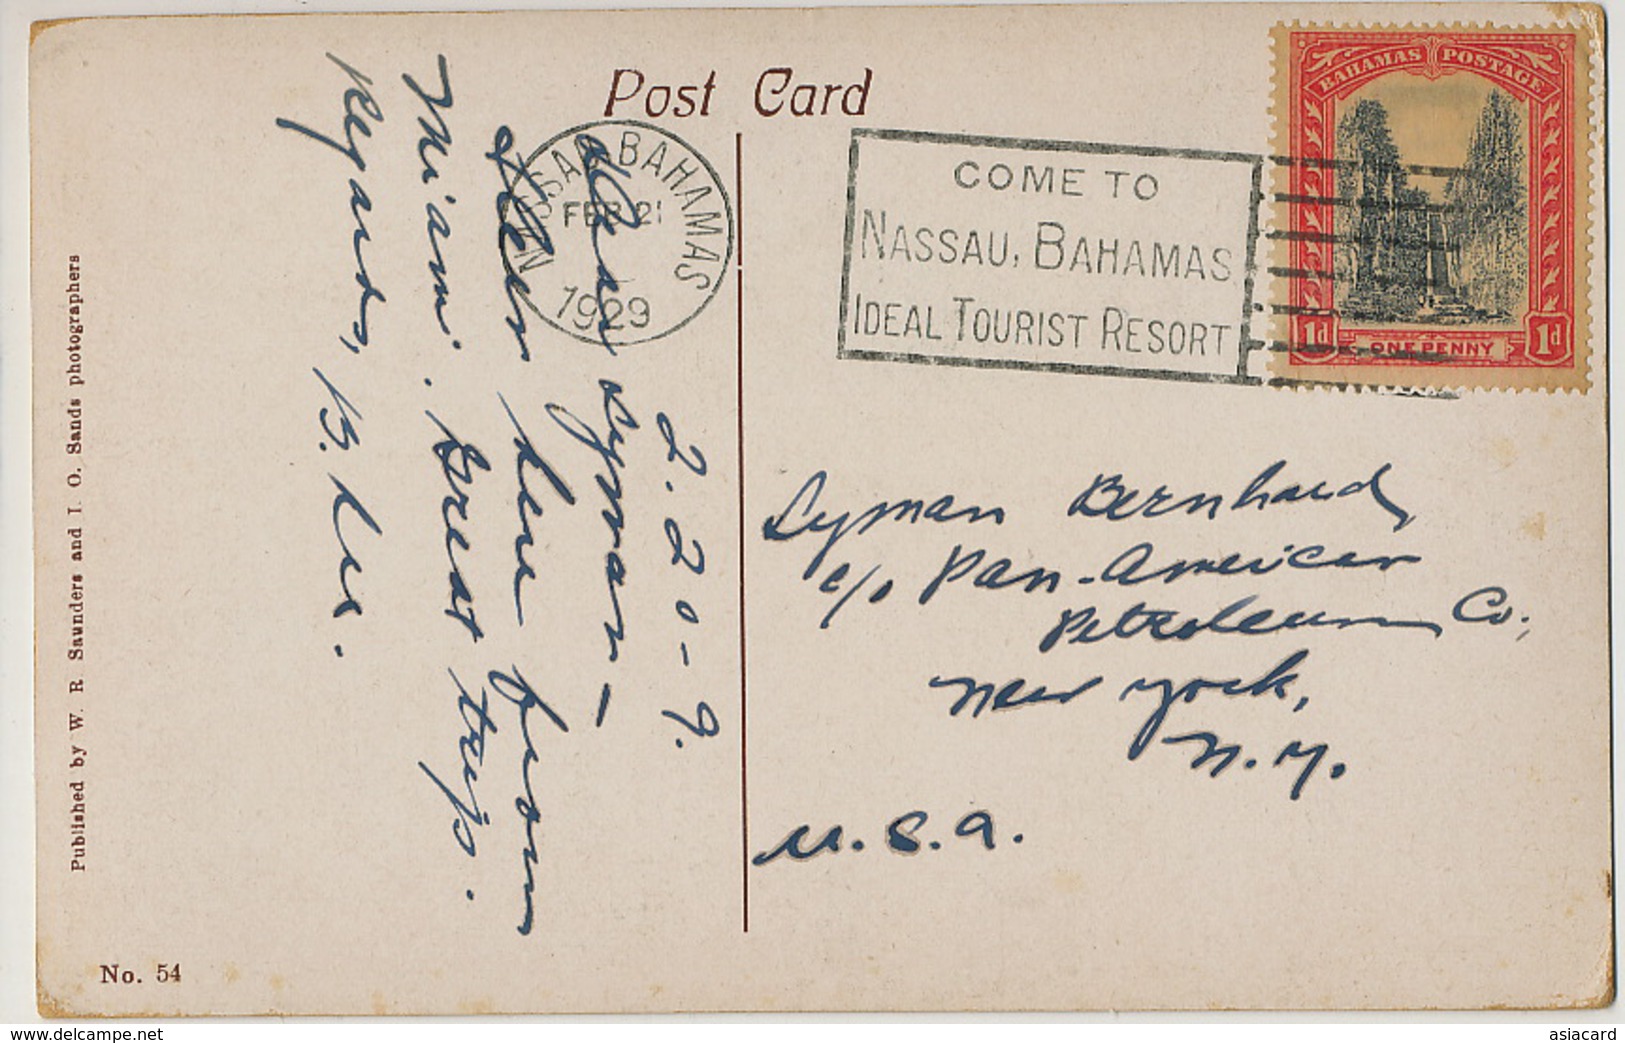 Post Card
NASSAU BAHAMAS
FEB 21
1929
COME TO
NASSAU, BAHAMAS
IDEAL TOURIST RESORT
BAHAMAS POSTAGE
1d ONE PENNY 1d
2.20-9.
Dear Lyman—
Flew here from
Miami. Great trip.
Regards,
Lyman Bernhard
c/o Pan-American
Petroleum Co.,
New York,
N.Y.
U.S.A.
Published by W. R. Saunders and J. O. Sands photographers
No. 54
delcampe.net
asiacard